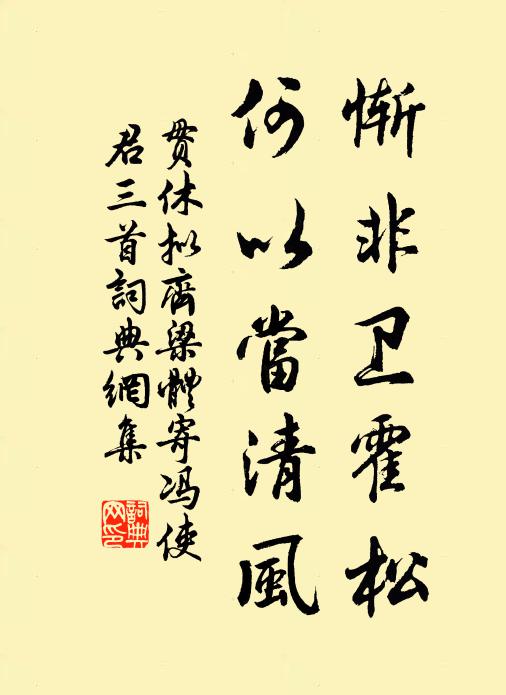 惭非卫霍松
何以當清風
貫休拟齊梁體寄冯使
君三首詞典網集
詞典网印